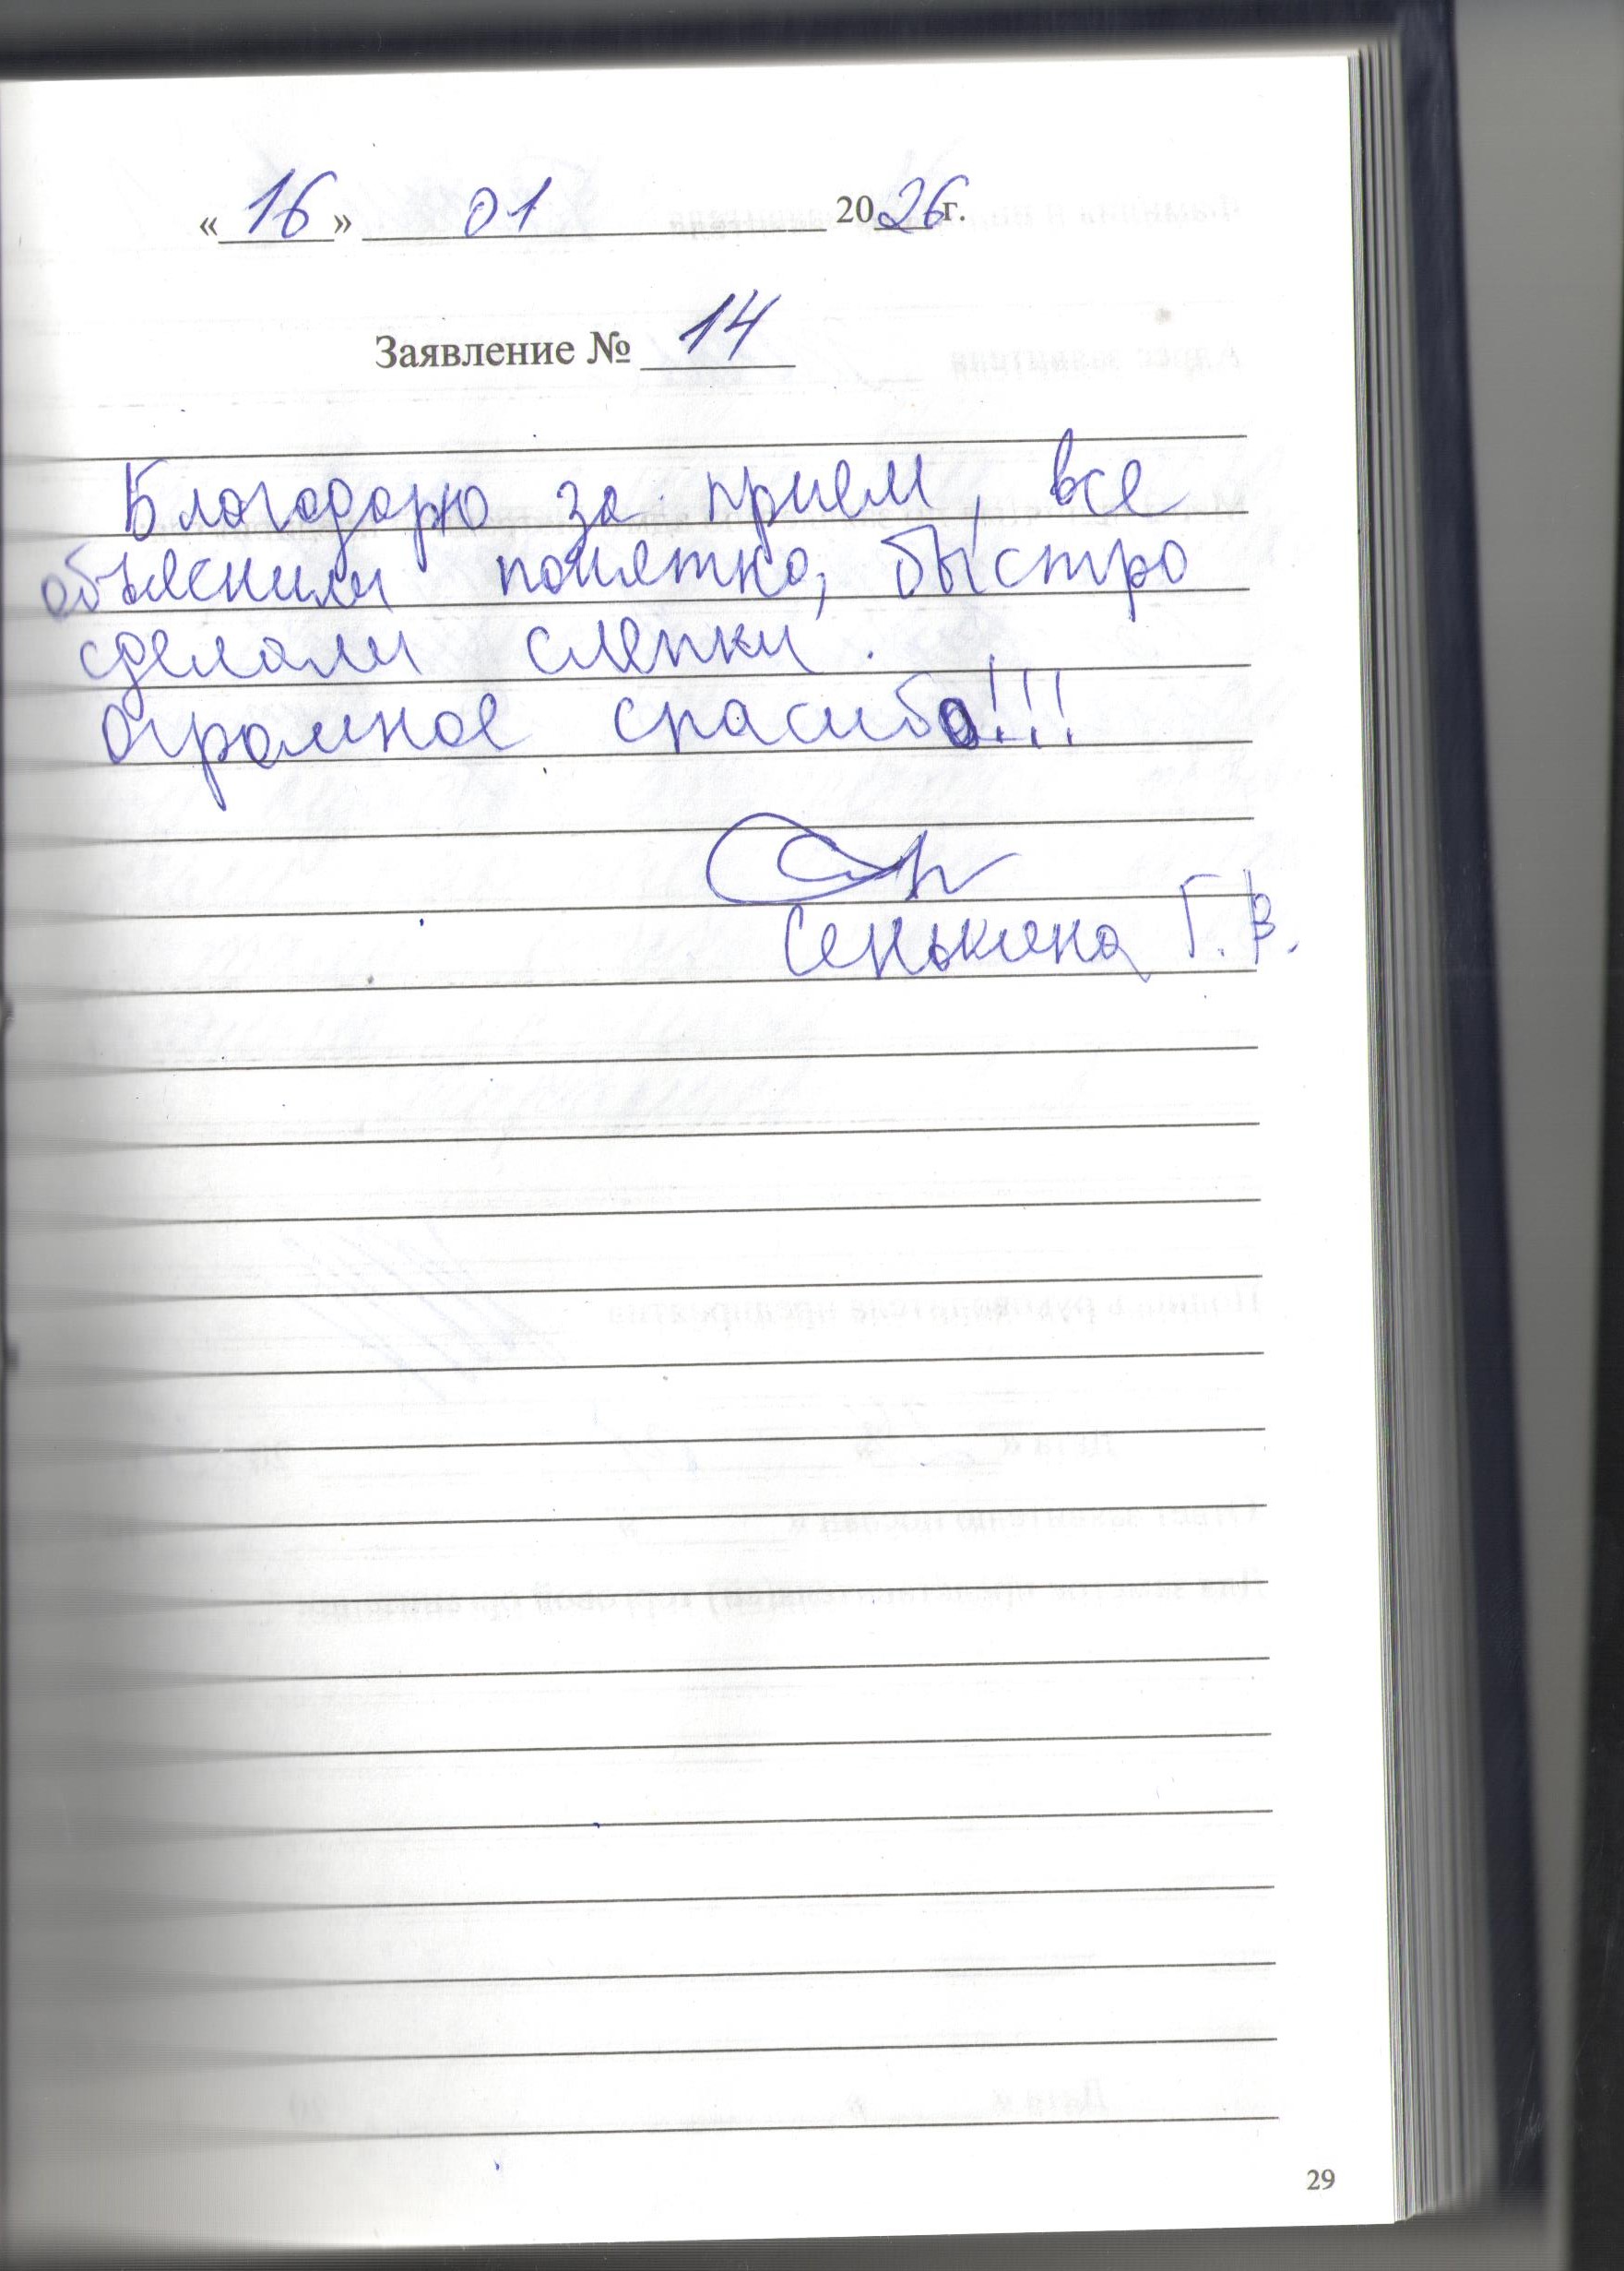 «16» 01 2026г.
Заявление № 14
Благодарю за прием, все
объяснили понятно, быстро
сделали слепки.
Огромное спасибо!!!
Сенькина Г.В.
29